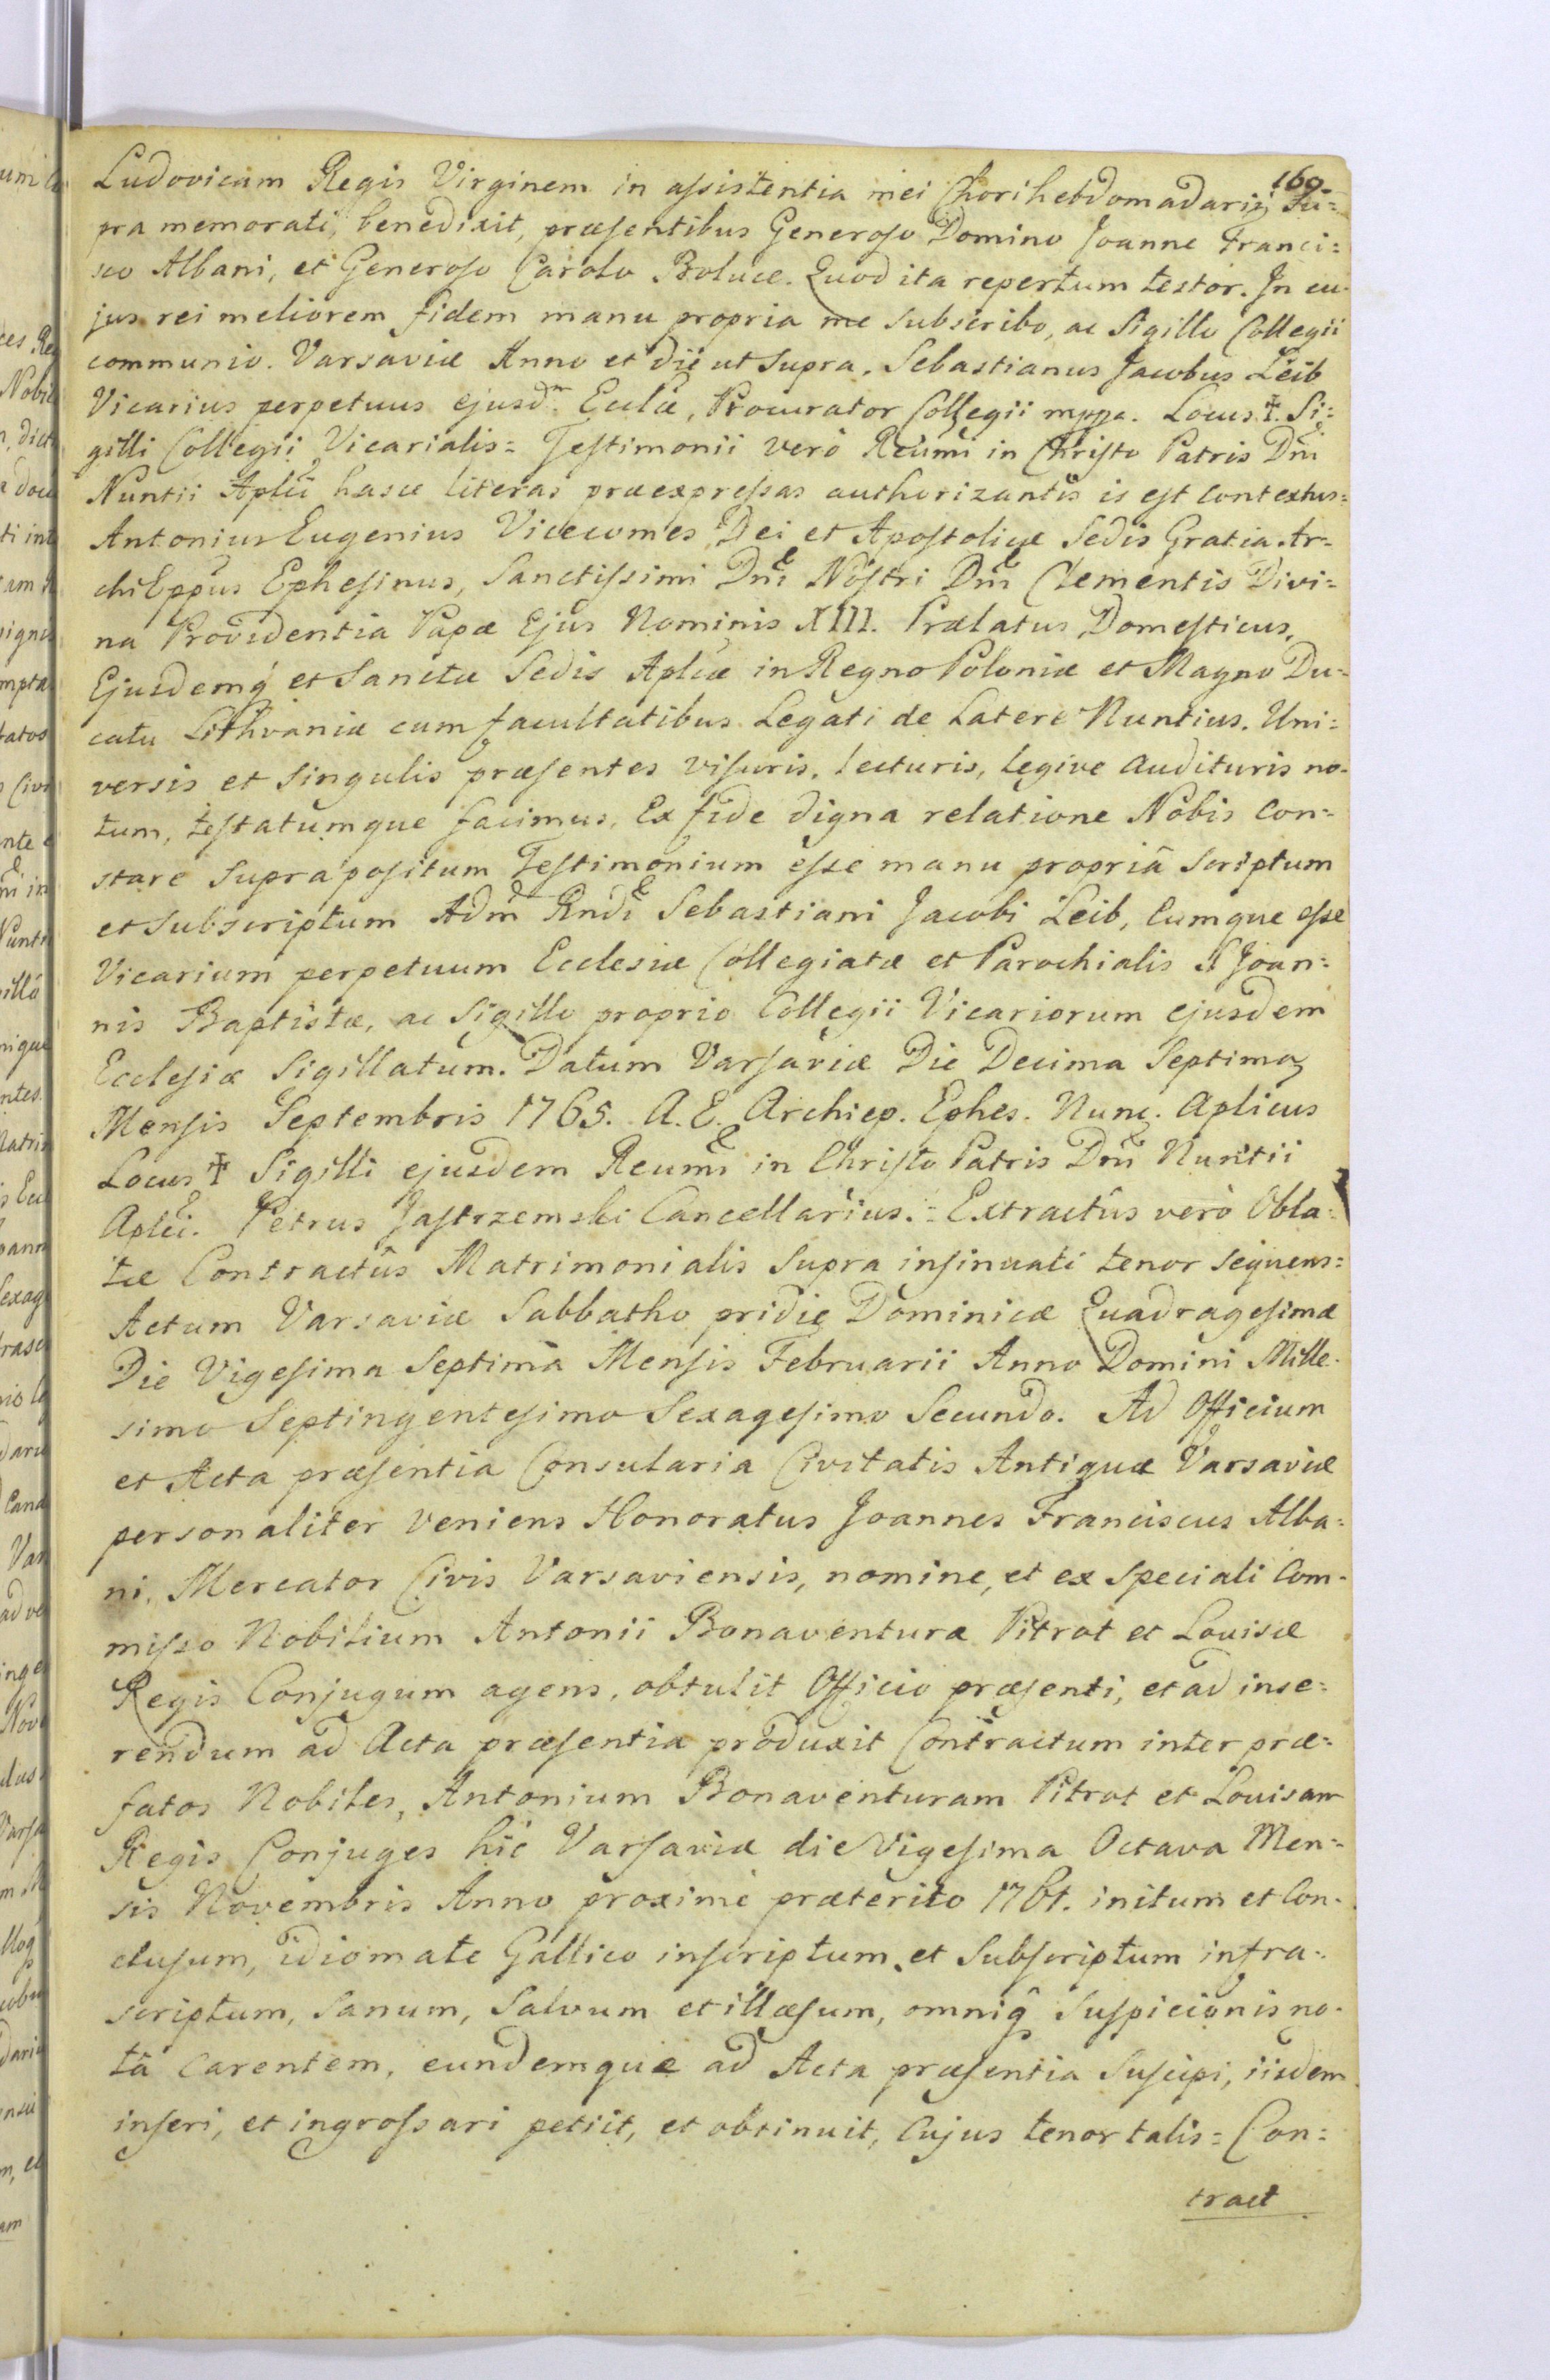 160.
Ludovicam Regis Virginem in assistentia mei Chori hebdomadarii Su=
pra memorati, benedixit, præsentibus Generoso Domino Joanne Franci=
sco Albani, et Generoso Carolo Boluce. Quod ita repertum testor. In cu=
jus rei meliorem fidem manu propria me subscribo, ac Sigillo Collegii
communio. Varsaviæ Anno et die ut supra. Sebastianus Jacobus Leib
Vicarius perpetuus ejusdm Ecclæ, Procurator Collegii mppa. Locus ✝ Si=
gilli Collegii Vicarialis = Testimonii verò Rcumi in Christo Patris Dni
Nuntii Aplici hasce literas præexpressas authorizantis is est contextus=
Antonius Eugenius Vicecomes Dei et Apostolicæ Sedis Gratia Ar=
chiEppus Ephesinus, Sanctissimi Dni Nostri Dni Clementis Divi=
na Providentia Papæ Ejus Nominis XIII. Prælatus Domesticus,
Ejusdemq́ et Sanctæ Sedis Aplicæ in Regno Poloniæ et Magno Du=
catu Lithvaniæ cum facultatibus Legati de Latere Nuntius. Uni=
versis et singulis præsentes visuris, lecturis, legive audituris no=
tum, testatumque facimus, Ex fide digna relatione Nobis Con=
stare Suprapositum Testimonium esse manu propriâ scriptum
et subscriptum Adm Rndi Sebastiani Jacobi Leib, Eumque esse
Vicarium perpetuum Ecclesiæ Collegiatæ et Parochialis S Joan=
nis Baptistæ, ac Sigillo proprio Collegii Vicariorum ejusdem
Ecclesiæ Sigillatum. Datum Varsaviæ Die Decima Septima
Mensis Septembris 1765. A. E. Archiep. Ephes. Nunc. Aplicus
Locus ✝ Sigilli ejusdem Rcumi in Christo Patris Dni Nuntii
Aplici. Petrus Jastrzemski Cancellarius. = Extractûs verò Obla=
tæ Contractûs Matrimonialis Supra insinuati tenor sequens=
Actum Varsaviæ Sabbatho pridie Dominicæ Quadragesimæ
Die Vigesima Septima Mensis Februarii Anno Domini Mille=
simo Septingentesimo Sexagesimo Secundo. Ad Officium
et Acta præsentia Consularia Civitatis Antiquæ Varsaviæ
personaliter veniens Honoratus Joannes Franciscus Alba=
ni, Mercator Civis Varsaviensis, nomine, et ex speciali Com=
misso Nobilium Antonii Bonaventuræ Pitrot et Louisæ
Regis Conjugum agens, obtulit Officio præsenti, et ad inse=
rendum ad Acta præsentia produxit Contractum inter præ=
fatos Nobiles, Antonium Bonaventuram Pitrot et Louisam
Regis Conjuges hic Varsaviæ die Vigesima Octava Men=
sis Novembris Anno proximè præterito 1761. initum et Con=
clusum, idiomate Gallico inscriptum, et Subscriptum infra=
scriptum, Sanum, Salvum et illæsum, omniq́ suspicionis no=
tâ carentem, eundemque ad Acta præsentia Suscipi, iisdem
inseri, et ingrossari petiit, et obtinuit, Cujus tenor talis = Con=
tract